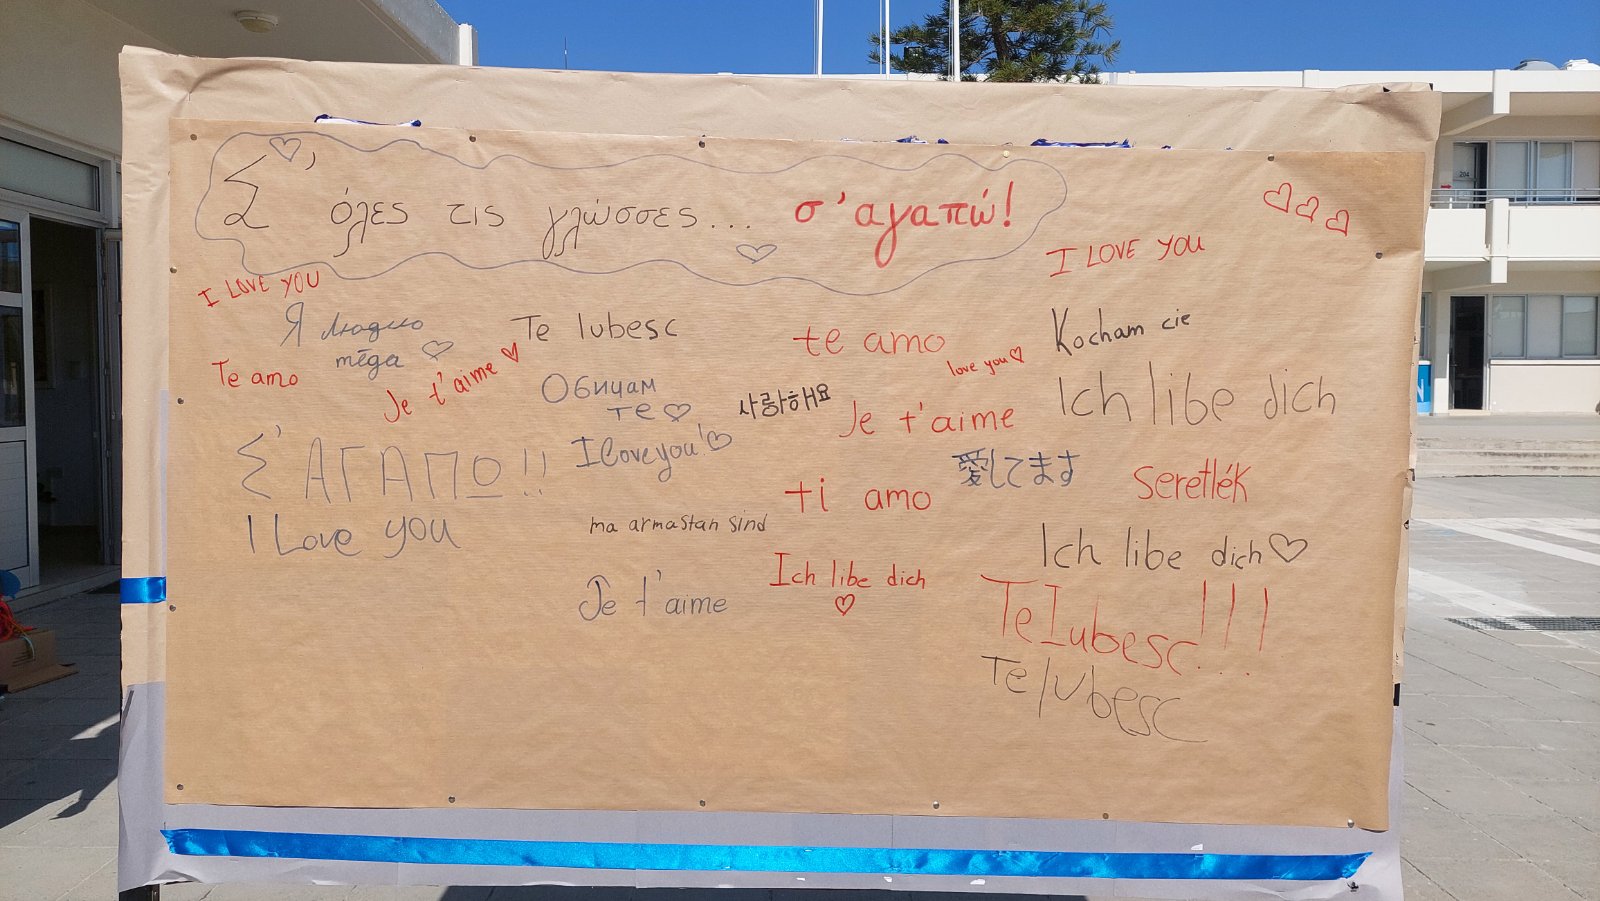 Σ' όλες τις γλώσσες... σ'αγαπώ!
I LOVE YOU
I LOVE YOU
Я люблю
тебя
Te iubesc
te amo
Kocham cie
love you
Te amo
Je t'aime
Обичам
те
사랑해요
Je t'aime
Ich libe dich
Σ'ΑΓΑΠΩ!!
I love you!
愛してます
ti amo
Seretlék
I Love you
ma armastan sind
Ich libe dich
Ich libe dich
Je t'aime
Te Iubesc!!!
Te iubesc
204